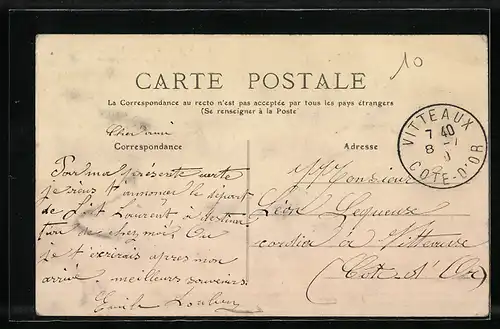 10
CARTE POSTALE
La Correspondance au recto n'est pas acceptée par tous les pays étrangers
(Se renseigner à la Poste
Correspondance
Adresse
VITTEAUX
7 40
8 -1
COTE-D'OR
Cher ami
Par ma présente carte
je viens t'annoncer le départ
de Laurent à destina
tion de chez moi. Ou
je t'écrirais apres mon
arrivé. meilleurs souvenirs.
Emile
Monsieur
Léon Legueuse
cordier à Vitteaux
(Cote d'Or)